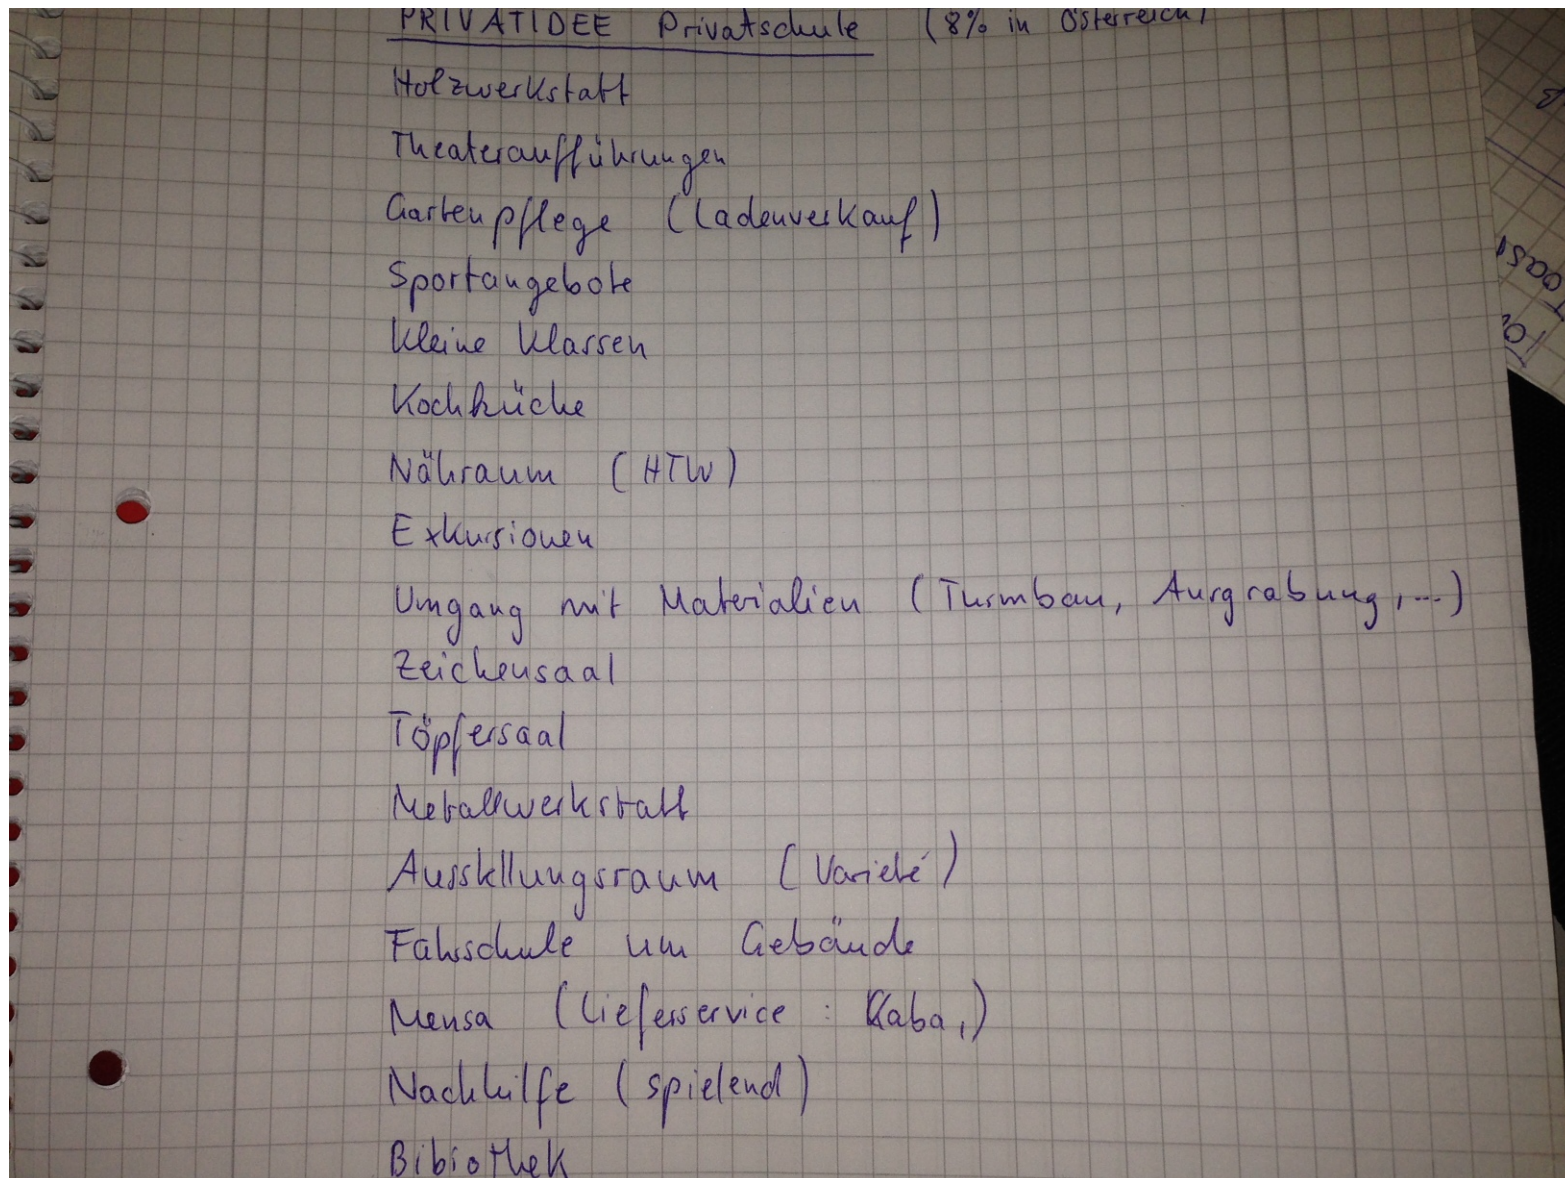 PRIVATIDEE Privatschule (8% in Österreich)
Holzwerkstatt
Theateraufführungen
Gartenpflege (Ladenverkauf)
Sportangebote
Kleine Klassen
Kochküche
Nähraum (HTW)
Exkursionen
Umgang mit Materialien (Turmbau, Ausgrabung,...)
Zeichensaal
Töpfersaal
Metallwerkstatt
Ausstellungsraum (Varieté)
Fahrschule um Gebäude
Mensa (Lieferservice : Kaba,)
Nachhilfe (spielend)
Bibiothek
Toast